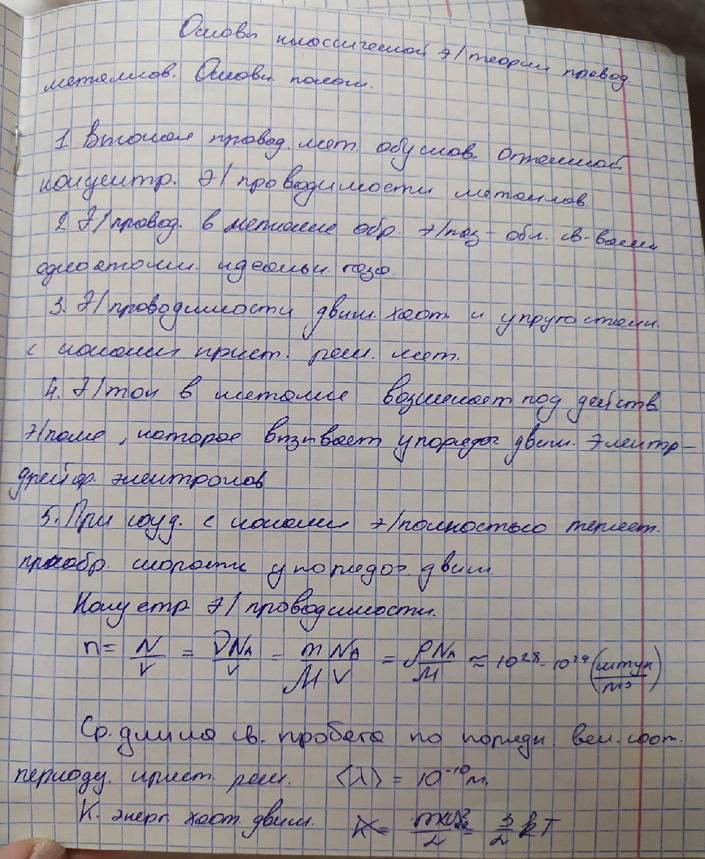 Основы классической э/теории провод.
металлов. Основн. полож.
1. Высокая провод. мет. обуслов. огромной
концентр. э/проводимости металлов
2. Э/провод. в металле обр. э/газ - обл. св-вами
одноатомн. идеальн. газа.
3. Э/проводимости движ. хаот. и упруго сталк.
с ионами крист. реш. мет.
4. Э/ток в металле возникает под действ
э/поля, которое вызывает упорядоч движ. электр -
дрейф. электронов
5. При соуд. с ионами э/полностью теряет.
приобр. скорости упорядоч движ.
Концентр э/проводимости.
n = N/V = νN_A/V = m N_A/M V = ρN_A/M ≈ 10²⁸ - 10²⁹ (штук/м³)
Ср. длина св. пробега по порядк. вел. соот.
периоду. крист. реш. ⟨λ⟩ = 10⁻¹⁰ м.
К. энерг. хаот. движ. = 3/2 kT